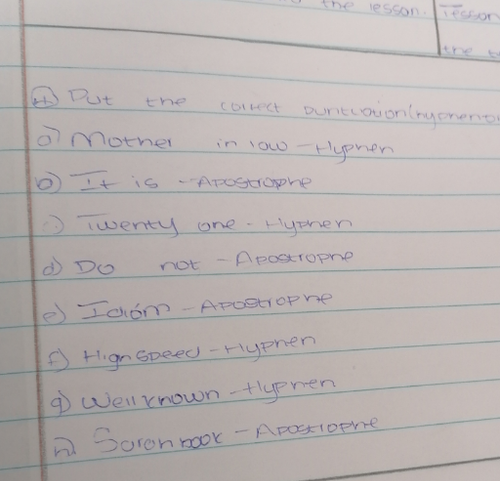 the lesson. lesson
the
Put the correct puntuation(hyphen
a) Mother in law - Hyphen
b) It is - Apostrophe
c) Twenty one - Hyphen
d) Do not - Apostrophe
e) I am - Apostrophe
f) High speed - Hyphen
g) Well known - Hyphen
h) Sarah book - Apostrophe